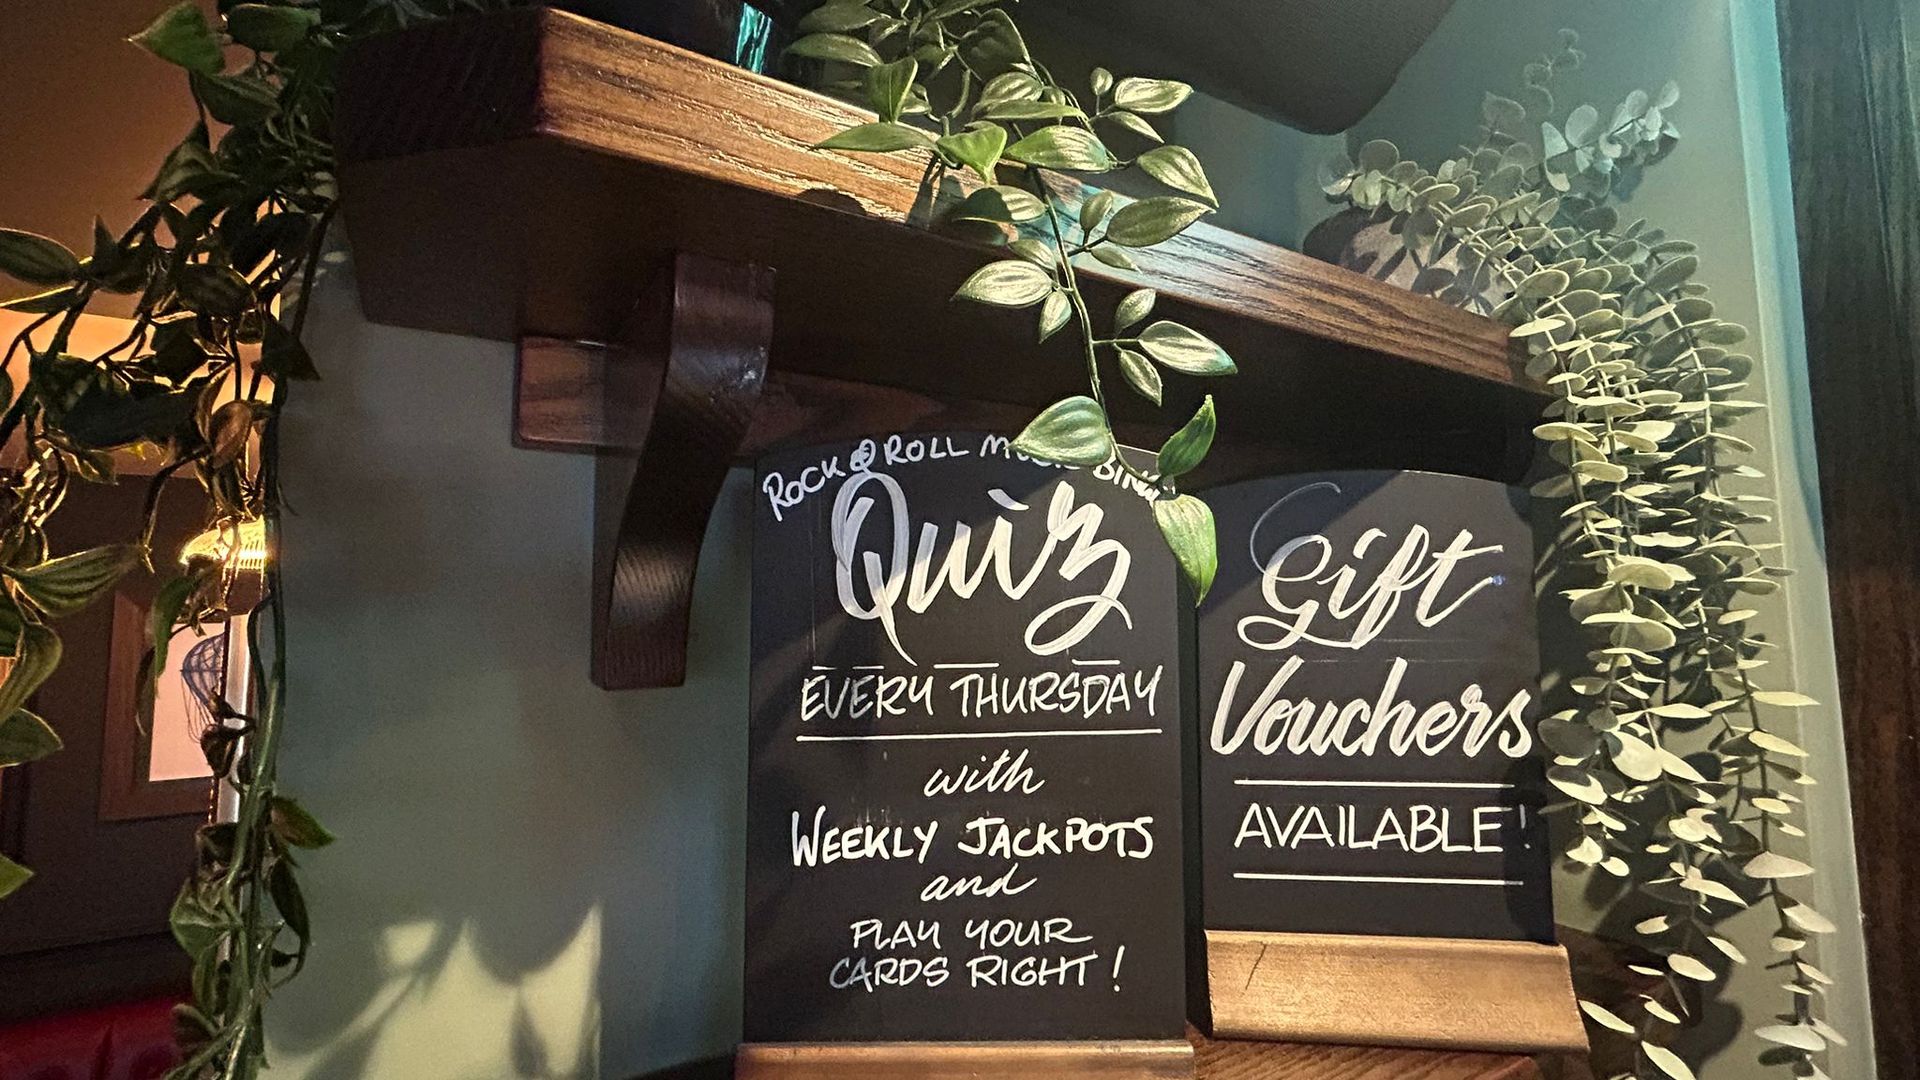 ROCK & ROLL BINGO
Quiz
EVERY THURSDAY
with
WEEKLY JACKPOTS
and
PLAY YOUR
CARDS RIGHT!
Gift
Vouchers
AVAILABLE!